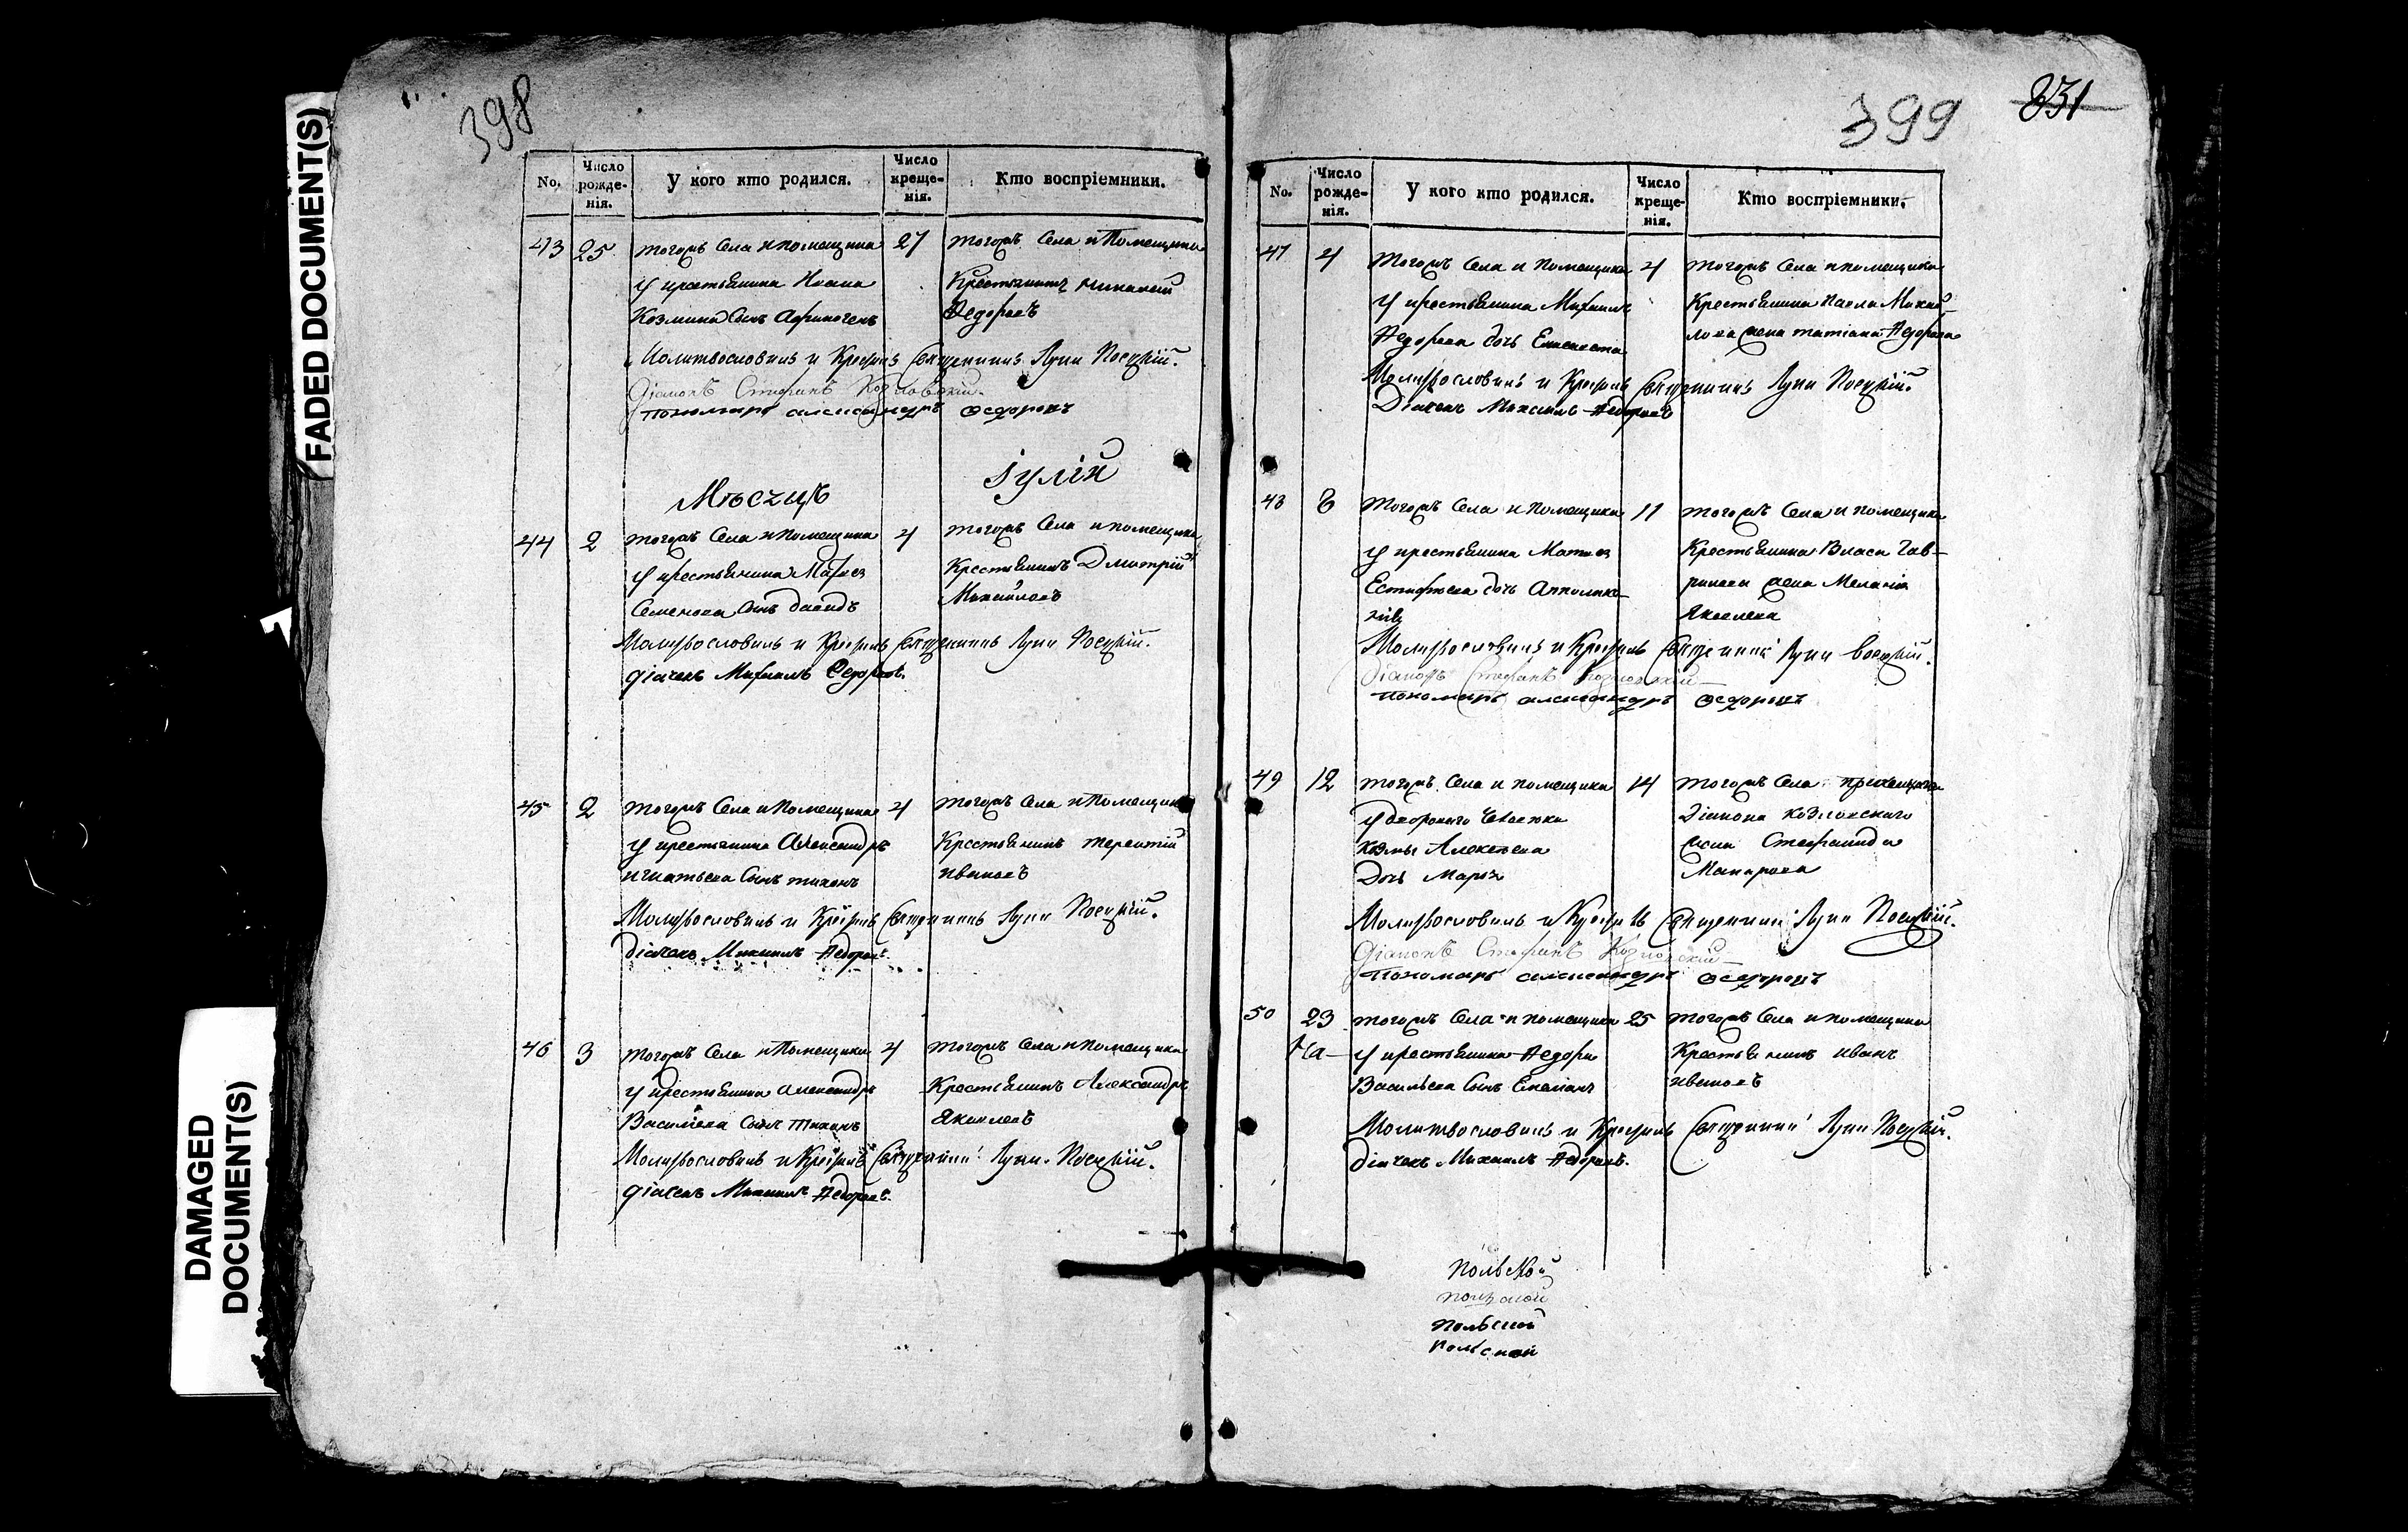 FADED DOCUMENT(S)
DAMAGED
DOCUMENT(S)
398
No.
Число рожде-нія.
У кого кто родился.
Число креще-нія.
Кто воспріемники.
43 25 тогожъ Села и помещика 27 тогожъ Села и Помещика
у крестьянина Ивана Крестьянинъ Николай
Козмина Сынъ Афиногенъ Федоровъ
Молитвословилъ и Крестилъ Священникъ Лука
Діаконъ Стефанъ Козловскій
пономарь александръ Федоровъ
Мѣсяцъ іулій
44 2 тогожъ Села и помещика 4 тогожъ Села и помещика
у крестьянина Матвея Крестьянинъ Дмитрій
Семенова Сынъ давидъ Михайловъ
Молитвословилъ и Крестилъ Священникъ Лука
діячекъ Михаилъ Федоровъ.
45 2 тогожъ Села и Помещика 4 тогожъ Села и Помещика
у крестьянина Александра Крестьянинъ терентій
игнатьева Сынъ тихонъ ивановъ
Молитвословилъ и Крестилъ Священникъ Лука
діячекъ Михаилъ Федоровъ.
46 3 тогожъ Села и Помещика 4 тогожъ Села и помещика
у крестьянина александра Крестьянинъ Александръ
Васильева Сынъ Тихонъ Яковлевъ
Молитвословилъ и Крестилъ Священникъ Лука
діячекъ Михаилъ Федоровъ.
399 831
No.
Число рожде-нія.
У кого кто родился.
Число креще-нія.
Кто воспріемники.
47 4 тогожъ Села и помещика 4 тогожъ Села и помещика
у крестьянина Михаила Крестьянина Павла Михай-
Федорова дочь Елисавета лова жена татіана Федорова
Молитвословилъ и Крестилъ Священникъ Лука
Діячекъ Михаилъ Федоровъ
48 8 тогожъ Села и Помещика 11 тогожъ Села и помещика
у крестьянина Матвея Крестьянина Власа Гав-
Естифеева дочь Апполина- рилова жена Меланія
Яковлева
Молитвословилъ и Крестилъ Священникъ Лука
Діаконъ Стефанъ Козловскій
пономарь александръ Федоровъ
49 12 тогожъ Села и помещика 14 тогожъ Села
у двороваго человека Діакона Козловскаго
Козмы Алексѣева жена Стефанида
Дочь Марѳа Макарова
Молитвословилъ и Крестилъ Священникъ Лука
Діаконъ Стефанъ Козловскій
пономарь александръ Федоровъ
50 23 тогожъ Села и помещика 25 тогожъ Села и помещика
у крестьянина Федора Крестьянинъ иванъ
Васильева Сынъ Емеліанъ ивановъ
Молитвословилъ и Крестилъ Священникъ Лука
діячекъ Михаилъ Федоровъ.
польской
польской
польской
польской